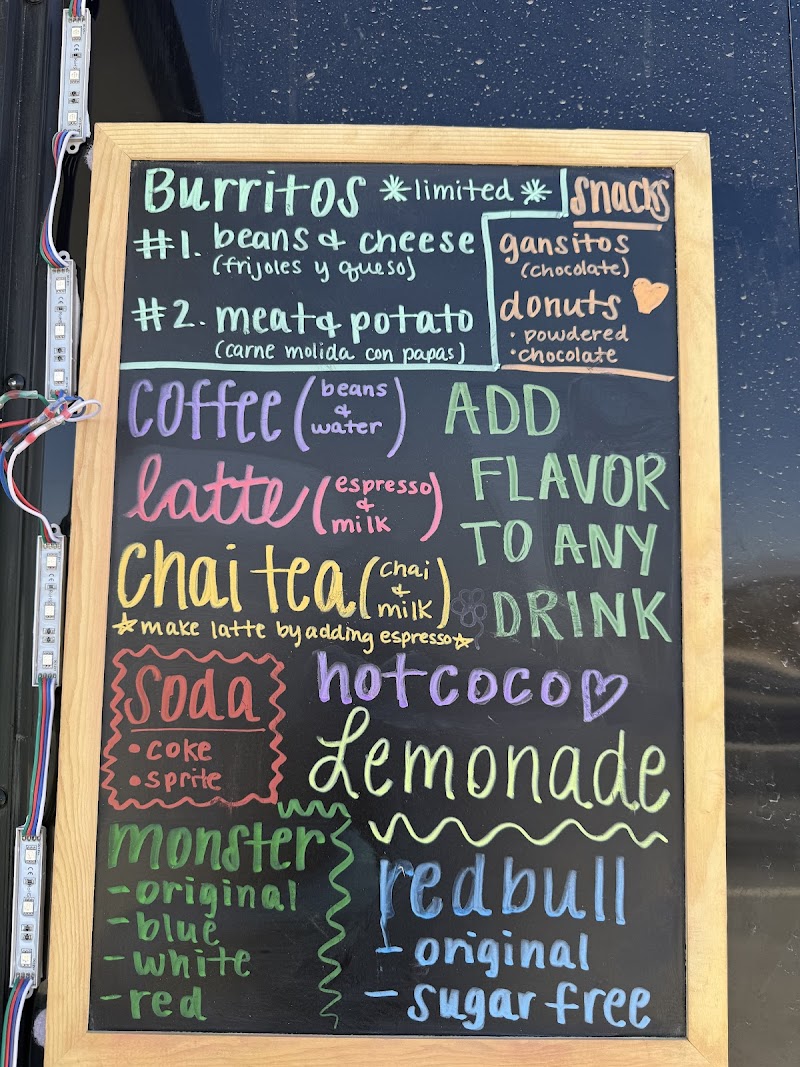 Burritos *limited*
#1. beans & cheese
(frijoles y queso)
#2. meat & potato
(carne molida con papas)
snacks
gansitos
(chocolate)
donuts
• powdered
• chocolate
coffee (beans
&
water)
latte (espresso
&
milk)
chai tea (chai
&
milk)
☆make latte by adding espresso☆
ADD
FLAVOR
TO ANY
DRINK
soda
• coke
• sprite
hot coco♡
Lemonade
monster
- original
- blue
- white
- red
redbull
- original
- sugar free